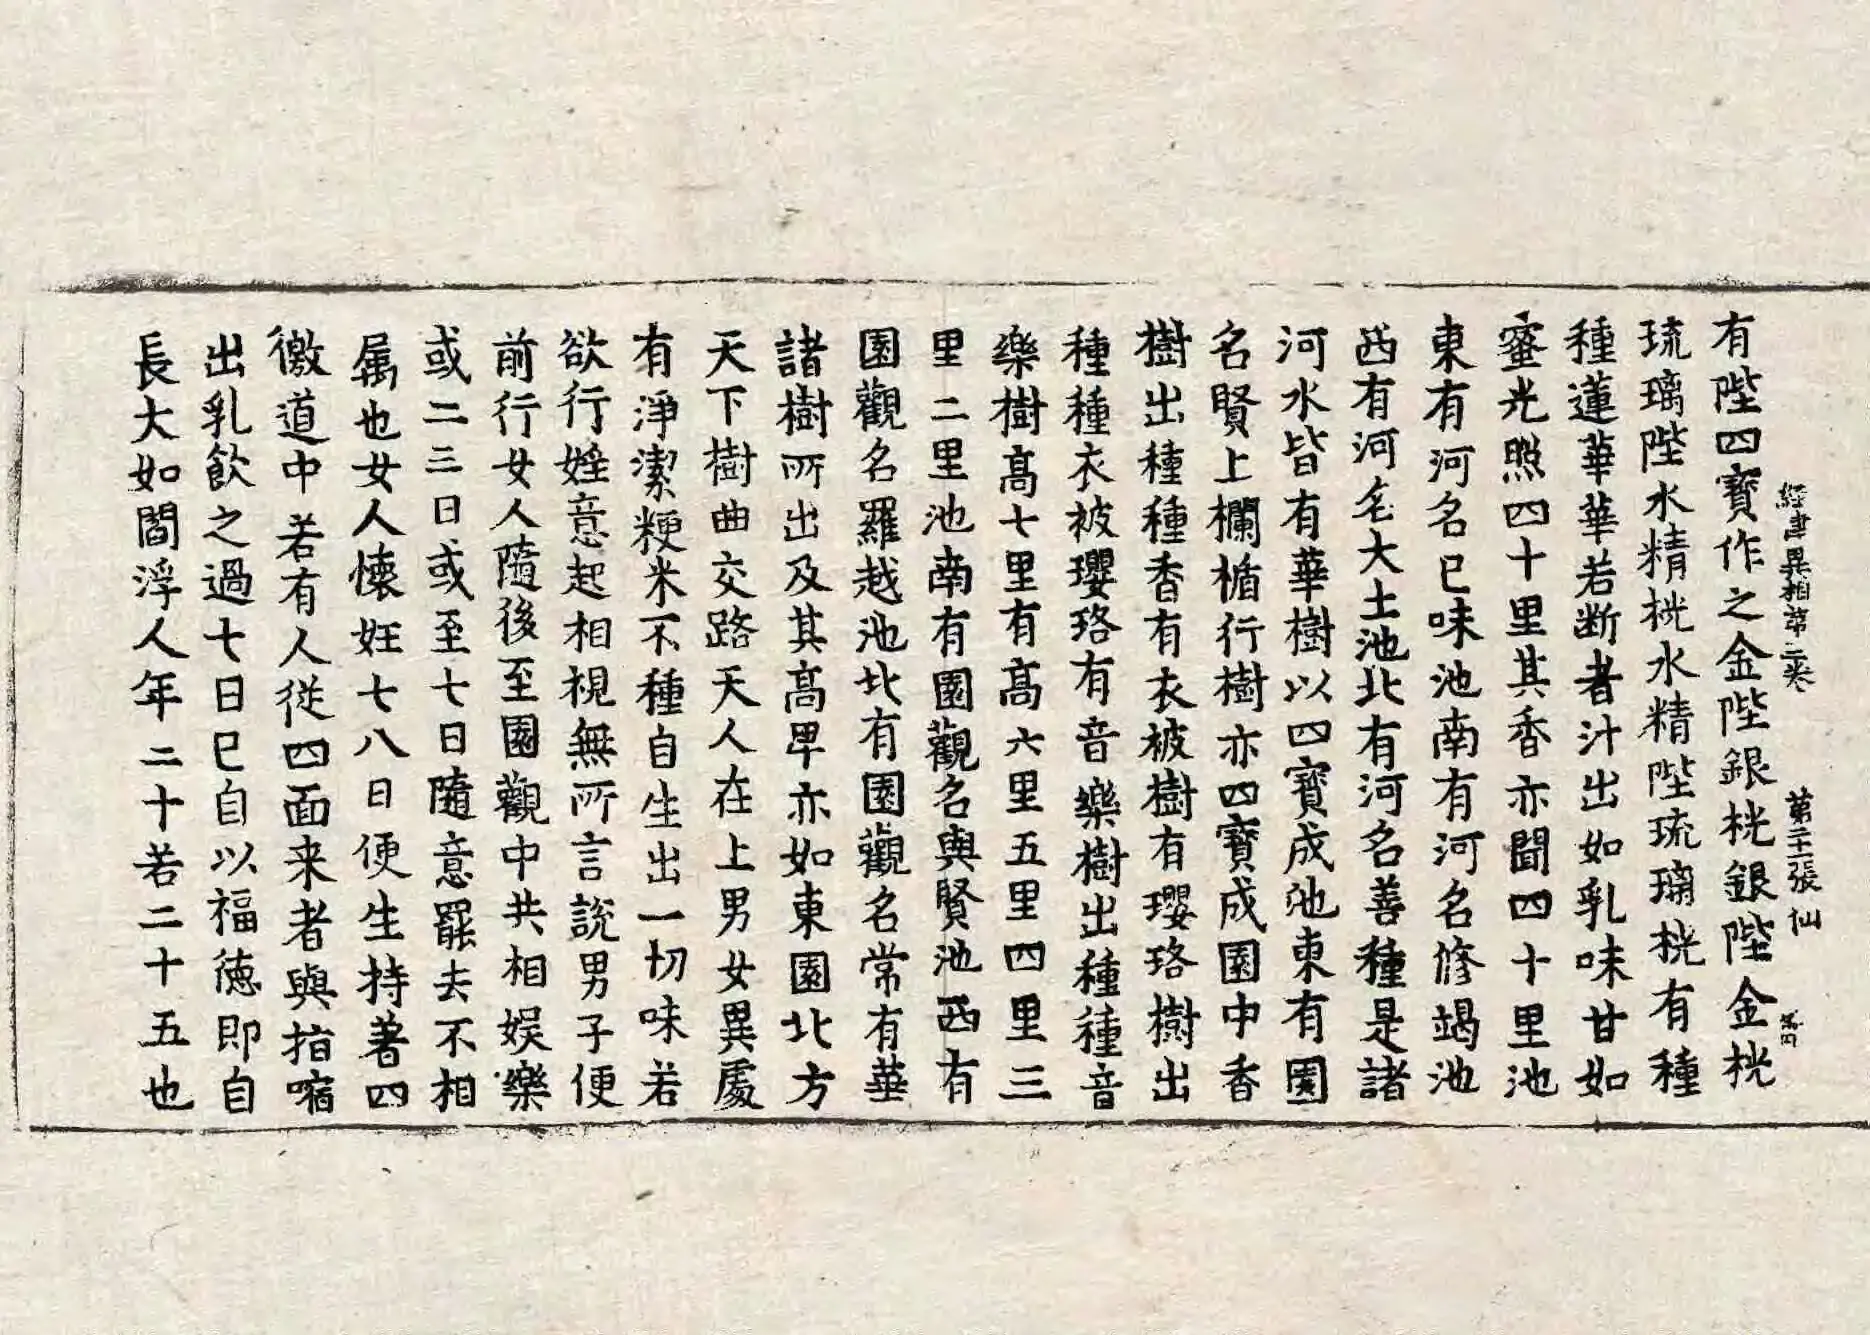 経律異相第二 張 仙
有陛四寶作之金陛銀桄銀陛金桄
琉璃陛水精桄水精陛琉璃桄有種
種蓮華華若断者汁出如乳味甘如
蜜光照四十里其香亦聞四十里池
東有河名已味池南有河名修竭池
西有河名大土池北有河名善種是諸
河水皆有華樹以四寶成池東有園
名賢上欄楯行樹亦四寶成園中香
樹出種種香有衣被樹有瓔珞樹出
種種衣被瓔珞有音樂樹出種種音
樂樹高七里有高六里五里四里三
里二里池南有園觀名與賢池西有
園觀名羅越池北有園觀名常有華
諸樹所出及其高卑亦如東園北方
天下樹曲交路天人在上男女異處
有淨潔粳米不種自生出一切味若
欲行婬意起相視無所言說男子便
前行女人隨後至園觀中共相娛樂
或二三日或至七日隨意罷去不相
属也女人懷妊七八日便生持著四
徼道中若有人從四面来者與指𠲿
出乳飲之過七日已自以福德即自
長大如閻浮人年二十若二十五也